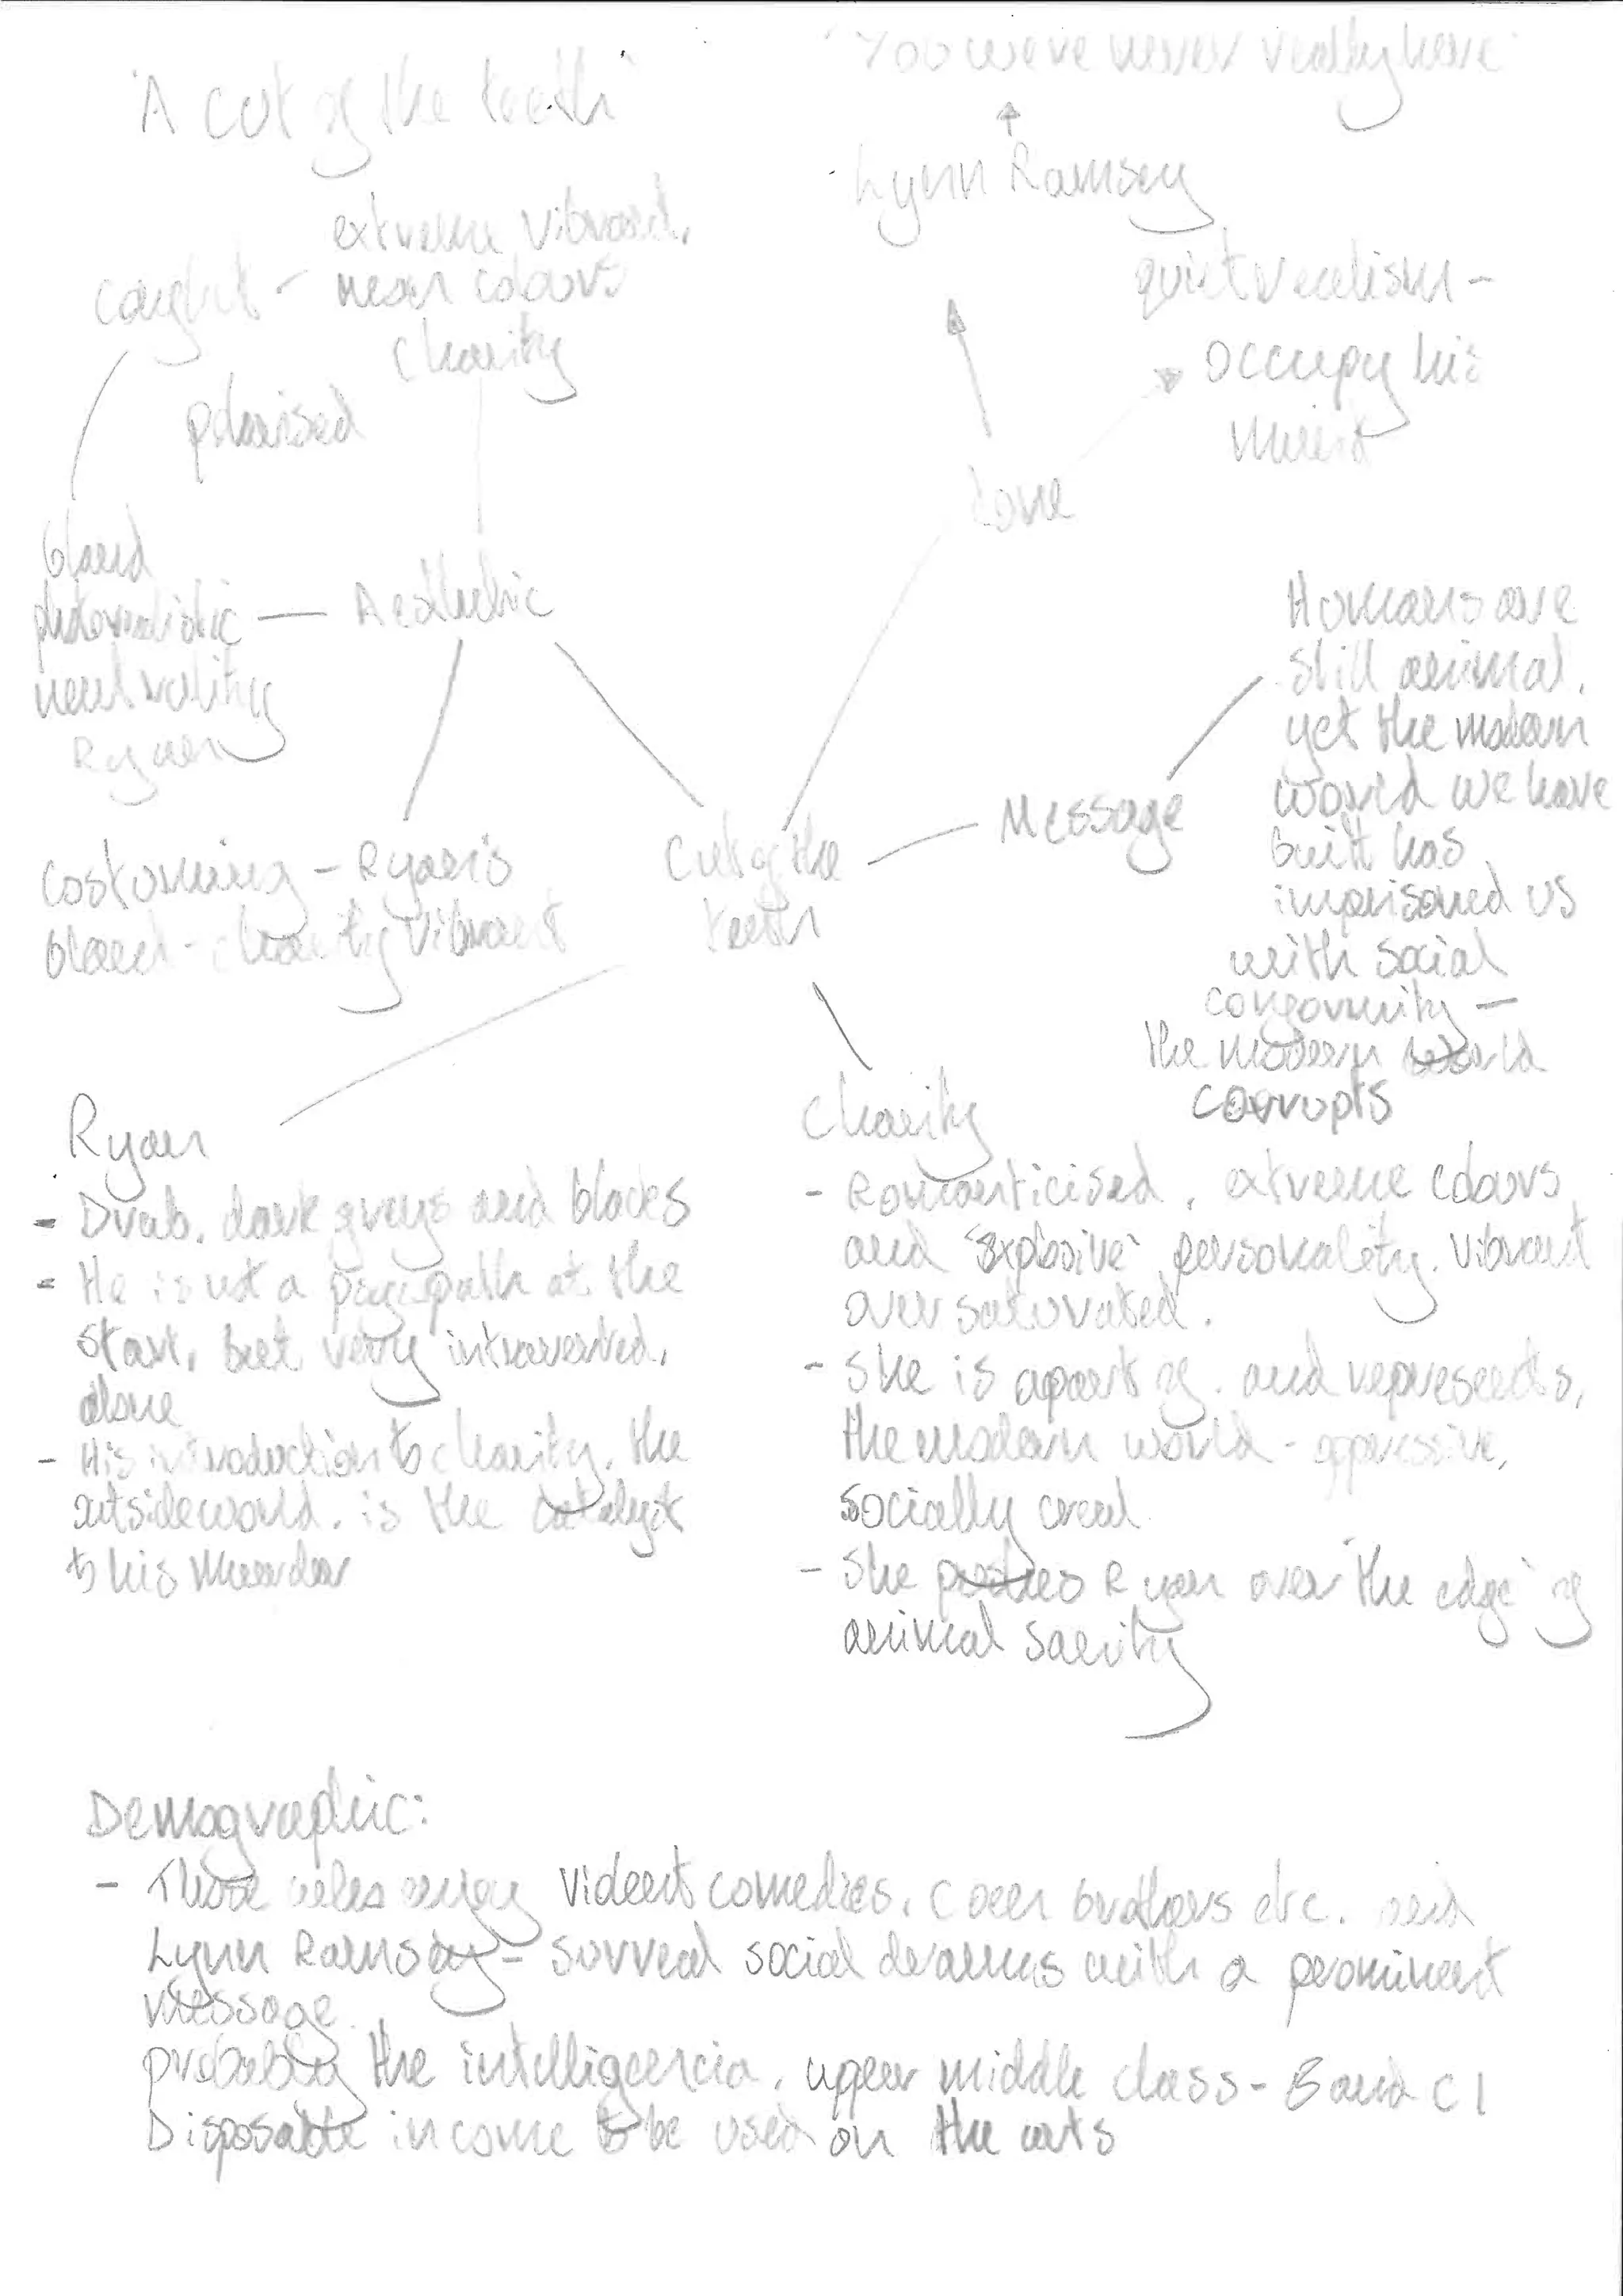 'A cut of the teeth'
'You were never really here'
Lynn Ramsey
extreme vibrant,
neon colours
Charity
polarised
quiet realism -
occupy his
Tone
bland
photorealistic
neutrality
Ryan
Aesthetic
Costuming - Ryan's
bland - charity vibrant
Cut of the
teeth
Message
Humans are
still animal,
yet the modern
world we have
built has
imprisoned us
with social
conformity -
the modern world
corrupts
Ryan
- Drab, dark greys and blacks
- He is not a psycopath at the
start, but very introverted,
alone
- His introduction to charity, the
outside world, is the catalyst
to his murder
Charity
- Romanticised, extreme colours
and "explosive" personality. Vibrant
over saturated.
- She is apart of, and represents,
the modern world - oppressive,
socially cruel
- She pushes Ryan over "the edge" of
animal sanity
Demographic:
- Those who enjoy violent comedies, Coen brothers etc. and
Lynn Ramsay - surreal social dramas with a prominent
message.
probably the intelligencia, upper middle class - B and C1
Disposable income to be used on the arts